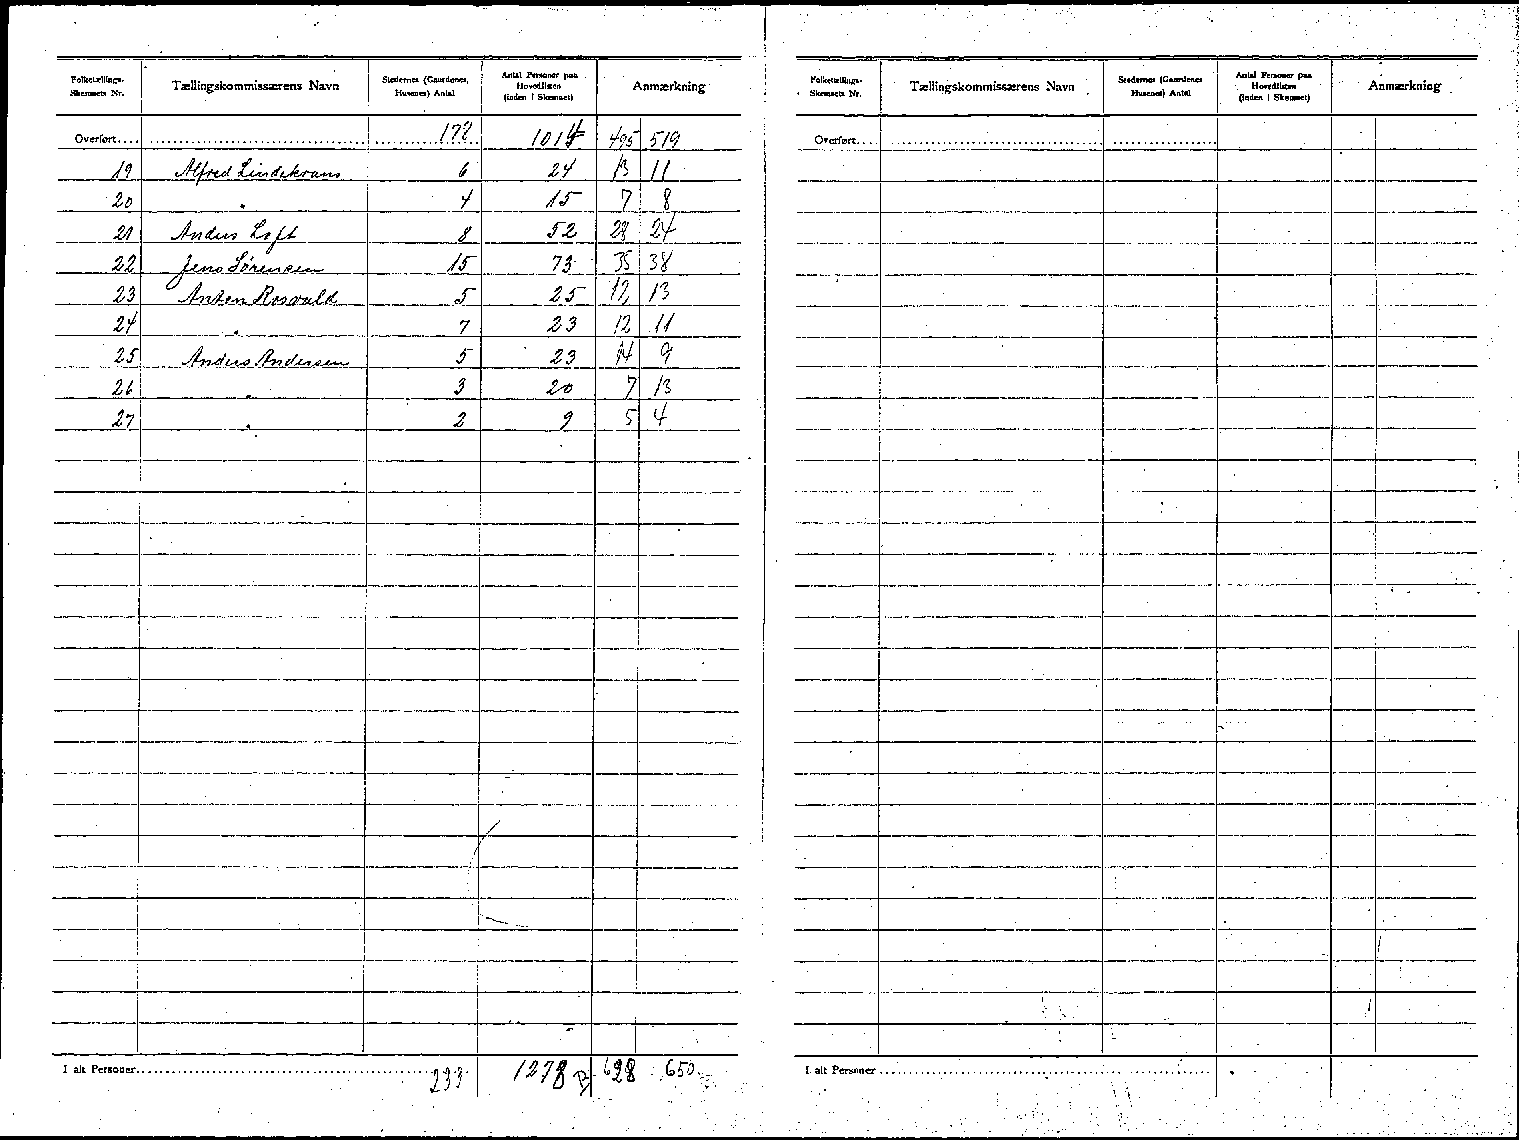 Folketællings-Skemaets Nr. Tællingskommissærens Navn Stedernes (Gaardenes, Husenes) Antal Antal Personer paa Hovedlisten (inden i Skemaet) Anmærkning
Overført.... 172 1014 495 519
19 Alfred Lindekrans 6 24 13 11
20 " 4 15 7 8
21 Anders Loft 8 52 28 24
22 Jens Sørensen 15 73 35 38
23 Anton Rosvald 5 25 12 13
24 " 7 23 12 11
25 Anders Andersen 5 23 14 9
26 " 3 20 7 13
27 " 2 9 5 4
I alt Personer 233 1278 628 650
Folketællings-Skemaets Nr. Tællingskommissærens Navn Stedernes (Gaardenes Husenes) Antal Antal Personer paa Hovedlisten (inden i Skemaet) Anmærkning
Overført....
I alt Personer